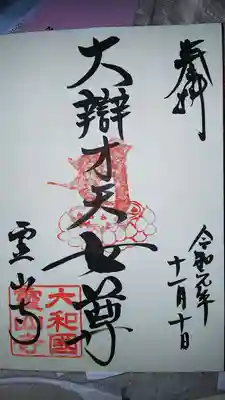 奉拝
令和元年
十一月十日
大辯才天女尊
霊山寺
大和國
霊山寺